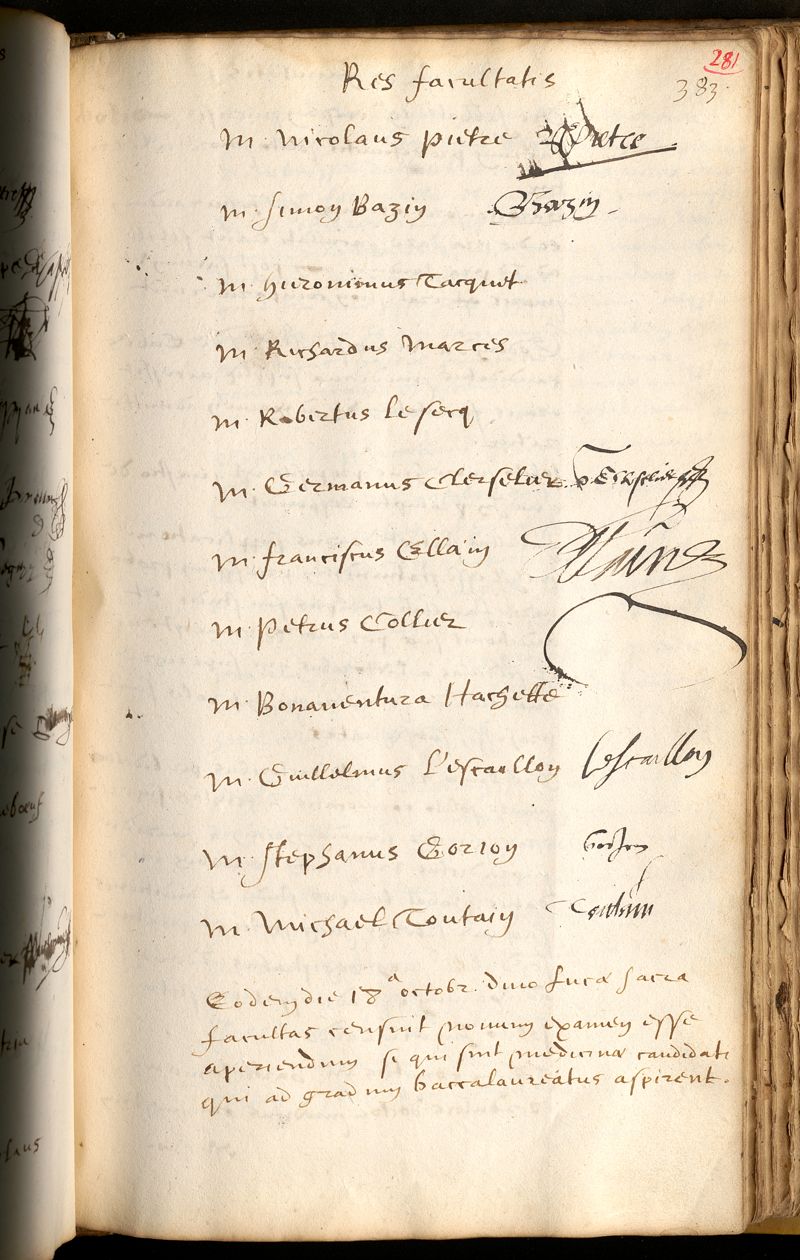 281
Res facultatis
383.
M. Nicolaus Pietre Pietre
M. Simon Bazin Bazin
M. Hieronimus Tacquet
M. Richardus Marces
M. Robertus Le secq
M. Germanus Clerselier
M. franciscus Ellain Ellain
M. Petrus Collier
M. Bonaventura Hachette
M. Guillelmus L'escaillon Lescaillon
M. Stephanus Gorion Gorion
M. Michael Toutain Toutain
Eodem die 18a octobr. divo Lucæ sacra
facultas censuit novum examen esse
aperiendum si qui sint medicinæ candidati
qui ad gradum baccalaureatus aspirent.